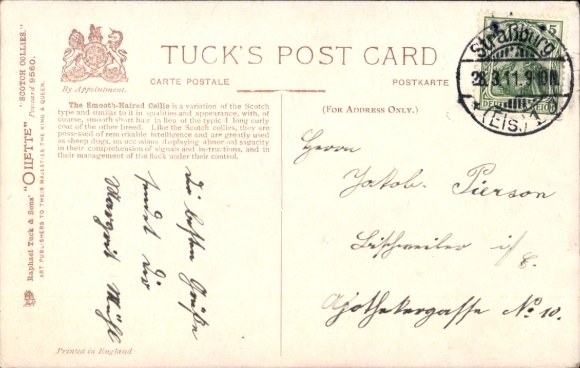 TUCK'S POST CARD
CARTE POSTALE
POSTKARTE
By Appointment.
The Smooth-Haired Collie is a variation of the Scotch
type and similar to it in qualities and appearance, with, of
course, smooth short hair in lieu of the typical long curly
coat of the other breed. Like the Scotch collies, they are
possessed of remarkable intelligence and are greatly used
as sheep dogs, on occasions displaying abnormal sagacity
in their comprehension of signals and instructions, and in
their management of the flock under their control.
(FOR ADDRESS ONLY.)
Raphael Tuck & Sons' "OILETTE" "SCOTCH COLLIES."
Postcard 9560.
ART PUBLISHERS TO THEIR MAJESTIES THE KING & QUEEN.
Die besten Grüße
sendet Dir
Margrit
Printed in England
5
DEUTSCHES REICH
Straßburg
28.3.11.9-10N.
* (Els.) 1
Herrn
Jakob. Pierson
Bischweiler i/
E.
Apothekergasse No 10.